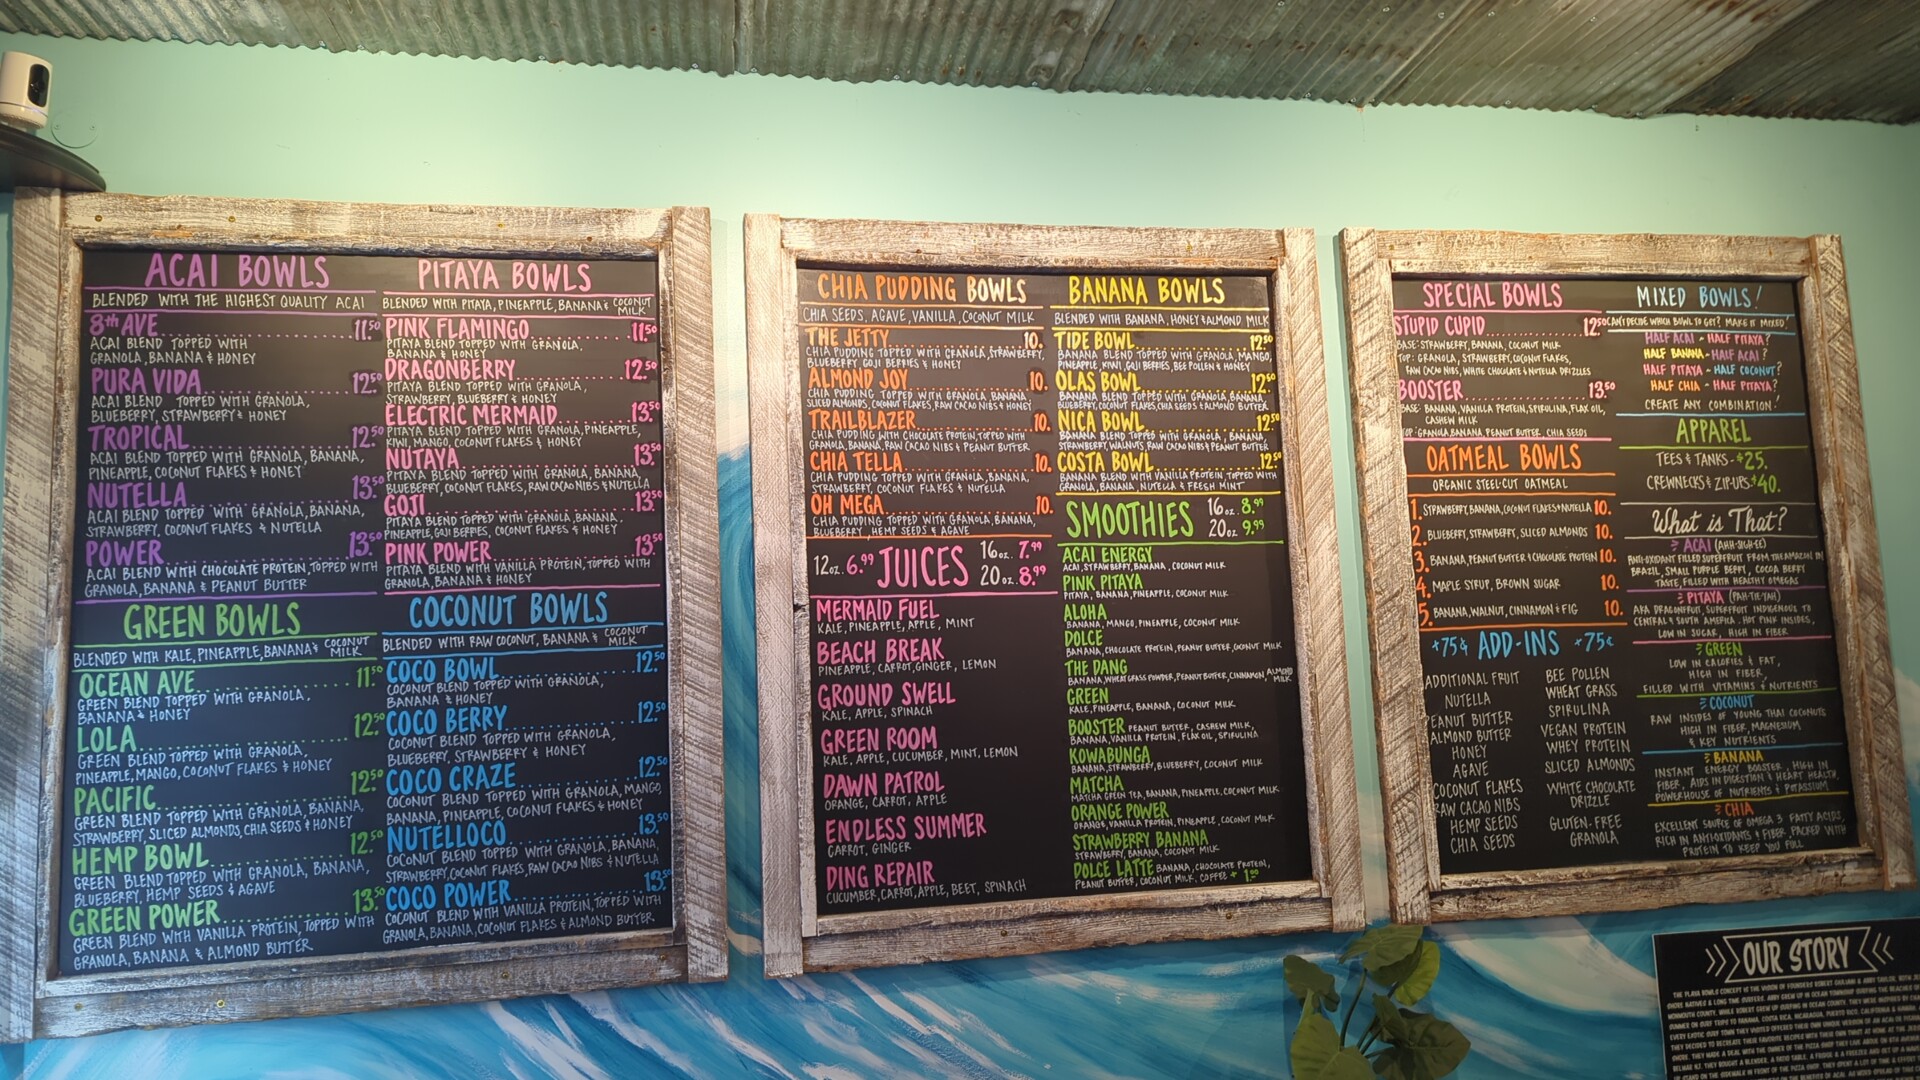 ACAI BOWLS
BLENDED WITH THE HIGHEST QUALITY ACAI
8th AVE 11.50
ACAI BLEND TOPPED WITH
GRANOLA, BANANA & HONEY
PURA VIDA 12.50
ACAI BLEND TOPPED WITH GRANOLA,
BLUEBERRY, STRAWBERRY & HONEY
TROPICAL 12.50
ACAI BLEND TOPPED WITH GRANOLA, BANANA,
PINEAPPLE, COCONUT FLAKES & HONEY
NUTELLA 13.50
ACAI BLEND TOPPED WITH GRANOLA, BANANA,
STRAWBERRY, COCONUT FLAKES & NUTELLA
POWER 13.50
ACAI BLEND WITH CHOCOLATE PROTEIN, TOPPED WITH
GRANOLA, BANANA & PEANUT BUTTER
GREEN BOWLS
BLENDED WITH KALE, PINEAPPLE, BANANA & COCONUT MILK
OCEAN AVE 11.50
GREEN BLEND TOPPED WITH GRANOLA,
BANANA & HONEY
LOLA 12.50
GREEN BLEND TOPPED WITH GRANOLA,
PINEAPPLE, MANGO, COCONUT FLAKES & HONEY
PACIFIC 12.50
GREEN BLEND TOPPED WITH GRANOLA, BANANA,
STRAWBERRY, SLICED ALMONDS, CHIA SEEDS & HONEY
HEMP BOWL 12.50
GREEN BLEND TOPPED WITH GRANOLA, BANANA,
BLUEBERRY, HEMP SEEDS & AGAVE
GREEN POWER 13.50
GREEN BLEND WITH VANILLA PROTEIN, TOPPED WITH
GRANOLA, BANANA & ALMOND BUTTER
PITAYA BOWLS
BLENDED WITH PITAYA, PINEAPPLE, BANANA & COCONUT MILK
PINK FLAMINGO 11.50
PITAYA BLEND TOPPED WITH GRANOLA,
BANANA & HONEY
DRAGONBERRY 12.50
PITAYA BLEND TOPPED WITH GRANOLA,
STRAWBERRY, BLUEBERRY & HONEY
ELECTRIC MERMAID 13.50
PITAYA BLEND TOPPED WITH GRANOLA, PINEAPPLE,
KIWI, MANGO, COCONUT FLAKES & HONEY
NUTAYA 13.50
PITAYA BLEND TOPPED WITH GRANOLA, BANANA,
BLUEBERRY, COCONUT FLAKES, RAW CACAO NIBS & NUTELLA
GOJI 13.50
PITAYA BLEND TOPPED WITH GRANOLA, BANANA,
PINEAPPLE, GOJI BERRIES, COCONUT FLAKES & HONEY
PINK POWER 13.50
PITAYA BLEND WITH VANILLA PROTEIN, TOPPED WITH
GRANOLA, BANANA & HONEY
COCONUT BOWLS
BLENDED WITH RAW COCONUT, BANANA & COCONUT MILK
COCO BOWL 12.50
COCONUT BLEND TOPPED WITH GRANOLA,
BANANA & HONEY
COCO BERRY 12.50
COCONUT BLEND TOPPED WITH GRANOLA,
BLUEBERRY, STRAWBERRY & HONEY
COCO CRAZE 12.50
COCONUT BLEND TOPPED WITH GRANOLA, MANGO,
BANANA, PINEAPPLE, COCONUT FLAKES & HONEY
NUTELLOCO 13.50
COCONUT BLEND TOPPED WITH GRANOLA, BANANA,
STRAWBERRY, COCONUT FLAKES, RAW CACAO NIBS & NUTELLA
COCO POWER 13.50
COCONUT BLEND WITH VANILLA PROTEIN, TOPPED WITH
GRANOLA, BANANA, COCONUT FLAKES & ALMOND BUTTER
CHIA PUDDING BOWLS
CHIA SEEDS, AGAVE, VANILLA, COCONUT MILK
THE JETTY 10.
CHIA PUDDING TOPPED WITH GRANOLA, STRAWBERRY,
BLUEBERRY, GOJI BERRIES & HONEY
ALMOND JOY 10.
CHIA PUDDING TOPPED WITH GRANOLA, BANANA,
SLICED ALMONDS, COCONUT FLAKES, RAW CACAO NIBS & HONEY
TRAILBLAZER 10.
CHIA PUDDING WITH CHOCOLATE PROTEIN, TOPPED WITH
GRANOLA, BANANA, RAW CACAO NIBS & PEANUT BUTTER
CHIA TELLA 10.
CHIA PUDDING TOPPED WITH GRANOLA, BANANA,
STRAWBERRY, COCONUT FLAKES & NUTELLA
OH MEGA 10.
CHIA PUDDING TOPPED WITH GRANOLA, BANANA,
BLUEBERRY, HEMP SEEDS & AGAVE
12oz. 6.99 JUICES 16oz. 7.99
20oz. 8.99
MERMAID FUEL
KALE, PINEAPPLE, APPLE, MINT
BEACH BREAK
PINEAPPLE, CARROT, GINGER, LEMON
GROUND SWELL
KALE, APPLE, SPINACH
GREEN ROOM
KALE, APPLE, CUCUMBER, MINT, LEMON
DAWN PATROL
ORANGE, CARROT, APPLE
ENDLESS SUMMER
CARROT, GINGER
DING REPAIR
CUCUMBER, CARROT, APPLE, BEET, SPINACH
BANANA BOWLS
BLENDED WITH BANANA, HONEY & ALMOND MILK
TIDE BOWL 12.50
BANANA BLEND TOPPED WITH GRANOLA, MANGO,
PINEAPPLE, KIWI, GOJI BERRIES, BEE POLLEN & HONEY
OLAS BOWL 12.50
BANANA BLEND TOPPED WITH GRANOLA, BANANA,
BLUEBERRY, COCONUT FLAKES, CHIA SEEDS & ALMOND BUTTER
NICA BOWL 12.50
BANANA BLEND TOPPED WITH GRANOLA, BANANA,
STRAWBERRY, WALNUTS, RAW CACAO NIBS & PEANUT BUTTER
COSTA BOWL 12.50
BANANA BLEND WITH VANILLA PROTEIN, TOPPED WITH
GRANOLA, BANANA, NUTELLA & FRESH MINT
SMOOTHIES 16oz. 8.99
20oz. 9.99
ACAI ENERGY
ACAI, STRAWBERRY, BANANA, COCONUT MILK
PINK PITAYA
PITAYA, BANANA, PINEAPPLE, COCONUT MILK
ALOHA
BANANA, MANGO, PINEAPPLE, COCONUT MILK
DOLCE
BANANA, CHOCOLATE PROTEIN, PEANUT BUTTER, COCONUT MILK
THE DANG
BANANA, WHEAT GRASS POWDER, PEANUT BUTTER, CINNAMON, ALMOND MILK
GREEN
KALE, PINEAPPLE, BANANA, COCONUT MILK
BOOSTER PEANUT BUTTER, CASHEW MILK,
BANANA, VANILLA PROTEIN, FLAX OIL, SPIRULINA
KOWABUNGA
BANANA, STRAWBERRY, BLUEBERRY, COCONUT MILK
MATCHA
MATCHA GREEN TEA, BANANA, PINEAPPLE, COCONUT MILK
ORANGE POWER
ORANGE, VANILLA PROTEIN, PINEAPPLE, COCONUT MILK
STRAWBERRY BANANA
STRAWBERRY, BANANA, COCONUT MILK
DOLCE LATTE BANANA, CHOCOLATE PROTEIN,
PEANUT BUTTER, COCONUT MILK, COFFEE +
SPECIAL BOWLS
STUPID CUPID 12.50
BASE: STRAWBERRY, BANANA, COCONUT MILK
TOP: GRANOLA, STRAWBERRY, COCONUT FLAKES,
RAW CACAO NIBS, WHITE CHOCOLATE & NUTELLA DRIZZLES
BOOSTER 13.50
BASE: BANANA, VANILLA PROTEIN, SPIRULINA, FLAX OIL,
CASHEW MILK
TOP: GRANOLA, BANANA, PEANUT BUTTER, CHIA SEEDS
OATMEAL BOWLS
ORGANIC STEEL-CUT OATMEAL
1. STRAWBERRY, BANANA, COCONUT FLAKES & NUTELLA 10.
2. BLUEBERRY, STRAWBERRY, SLICED ALMONDS 10.
3. BANANA, PEANUT BUTTER & CHOCOLATE PROTEIN 10.
4. MAPLE SYRUP, BROWN SUGAR 10.
5. BANANA, WALNUT, CINNAMON & FIG 10.
+75¢ ADD-INS +75¢
ADDITIONAL FRUIT
NUTELLA
PEANUT BUTTER
ALMOND BUTTER
HONEY
AGAVE
COCONUT FLAKES
RAW CACAO NIBS
HEMP SEEDS
CHIA SEEDS
BEE POLLEN
WHEAT GRASS
SPIRULINA
VEGAN PROTEIN
WHEY PROTEIN
SLICED ALMONDS
WHITE CHOCOLATE
DRIZZLE
GLUTEN-FREE
GRANOLA
MIXED BOWLS!
CAN'T DECIDE WHICH BOWL TO GET? MAKE IT MIXED!
HALF ACAI - HALF PITAYA?
HALF BANANA - HALF ACAI?
HALF PITAYA - HALF COCONUT?
HALF CHIA - HALF PITAYA?
CREATE ANY COMBINATION!
APPAREL
TEES & TANKS - $25.
CREWNECKS & ZIP-UPS $40.
What is That?
ACAI (AHH-SIGH-EE)
ANTI-OXIDANT FILLED SUPERFRUIT FROM THE AMAZON IN
BRAZIL, SMALL PURPLE BERRY, COCOA BERRY
TASTE, FILLED WITH HEALTHY OMEGAS
PITAYA (PAH-TIE-YAH)
AKA DRAGONFRUIT, SUPERFRUIT INDIGENOUS TO
CENTRAL & SOUTH AMERICA. HOT PINK INSIDES,
LOW IN SUGAR, HIGH IN FIBER
GREEN
LOW IN CALORIES & FAT,
HIGH IN FIBER,
FILLED WITH VITAMINS & NUTRIENTS
COCONUT
RAW INSIDES OF YOUNG THAI COCONUTS
HIGH IN FIBER, MAGNESIUM,
& KEY NUTRIENTS
BANANA
INSTANT ENERGY BOOSTER, HIGH IN
FIBER, AIDS IN DIGESTION & HEART HEALTH,
POWERHOUSE OF NUTRIENTS & POTASSIUM
CHIA
EXCELLENT SOURCE OF OMEGA 3 FATTY ACIDS,
RICH IN ANTI-OXIDANTS & FIBER. PACKED WITH
PROTEIN TO KEEP YOU FULL
OUR STORY